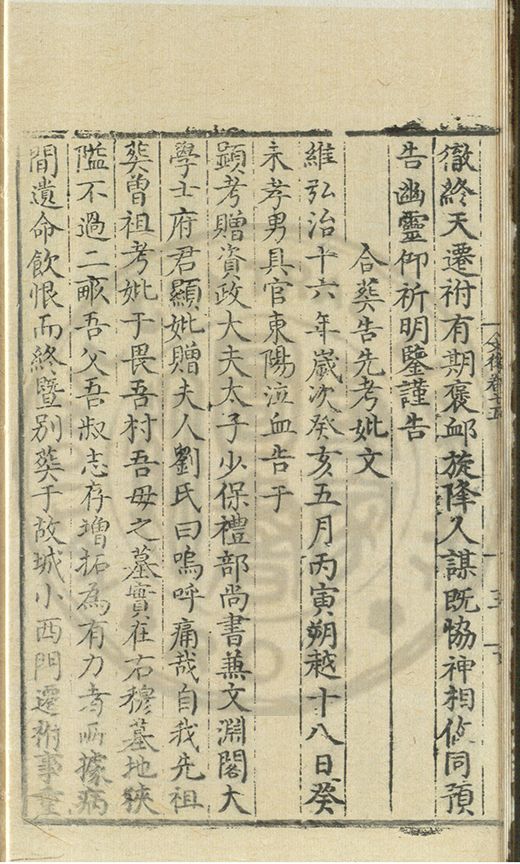 徹終天遷祔有期褒䘏旋降人謀既恊神相攸同預
告幽靈仰祈明鑒謹告
合葬告先考妣文
維弘治十六年歲次癸亥五月丙寅朔越十八日癸
未孝男具官東陽泣血告于
顕考贈資政大夫太子少保禮部尚書兼文淵閣大
學士府君顯妣贈夫人劉氏曰嗚呼痛哉自我先祖
葬曾祖考妣于畏吾村吾母之墓實在右穆墓地狹
隘不過二畝吾父吾叔志存增拓為有力者所據病
間遺命飲恨而終暨別葬于故城小西門遷祔事重